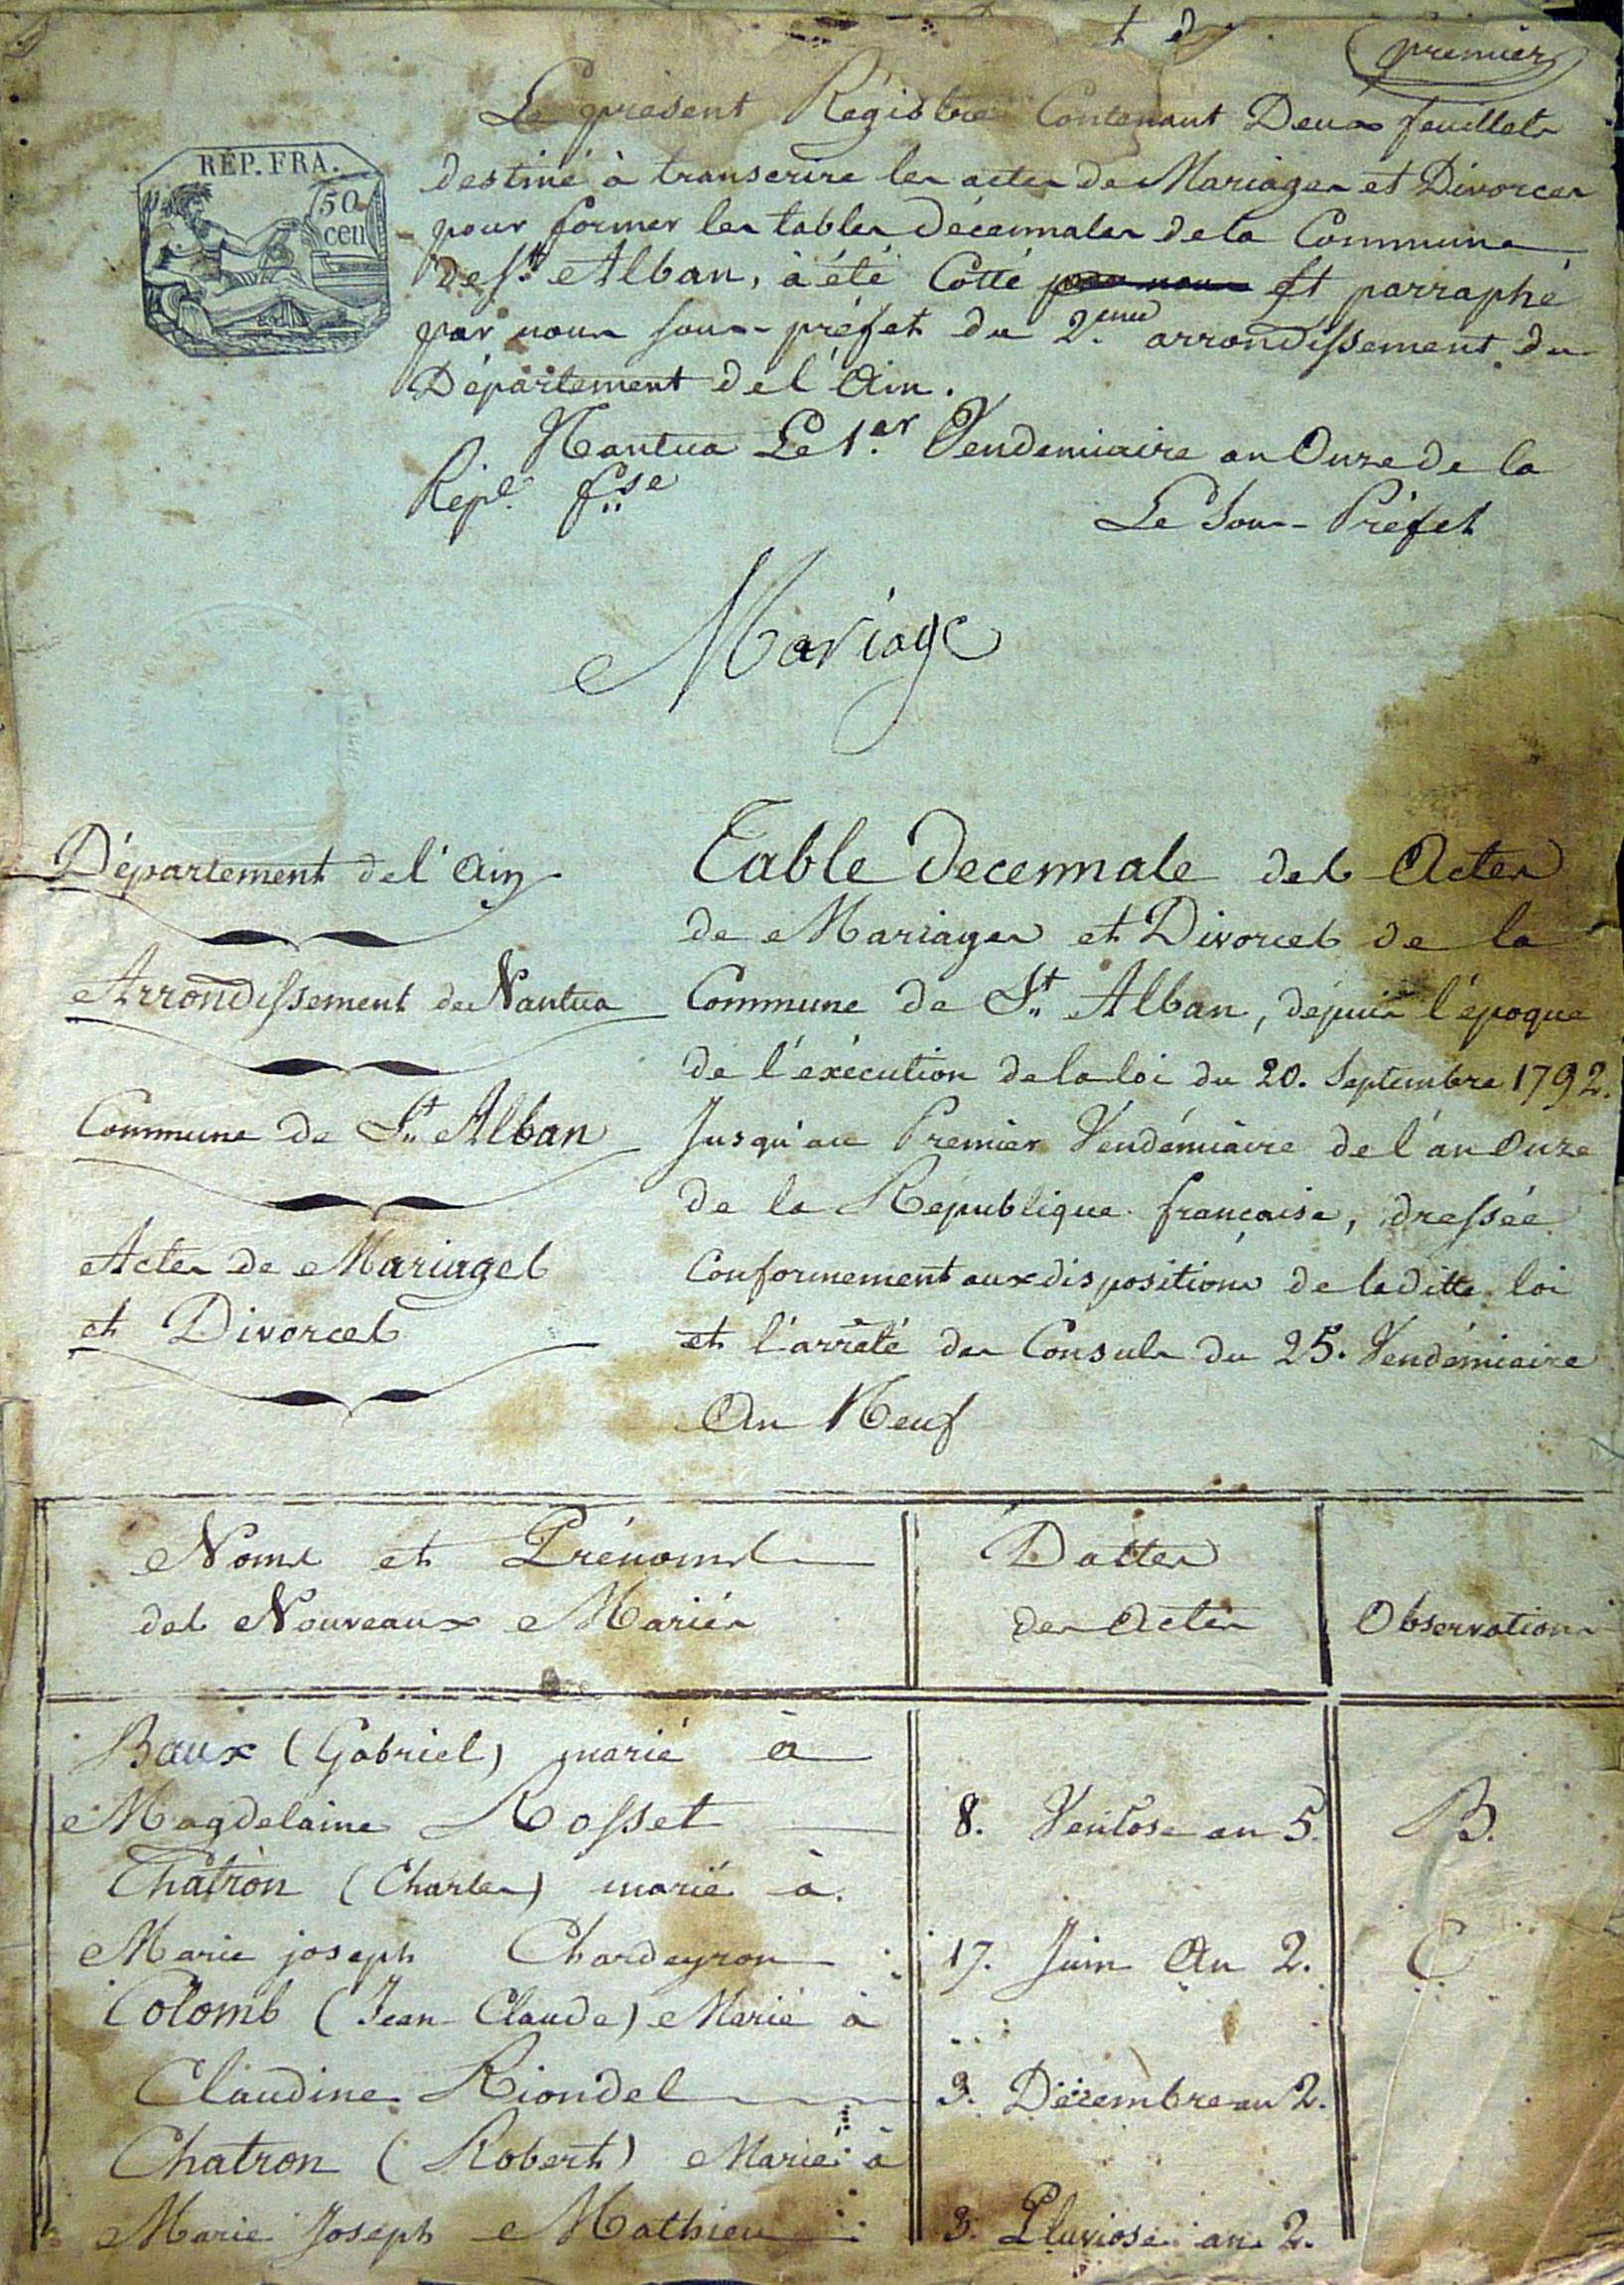 premier
Le present Régistre Contenant Deux feuillets
destiné à transcrire les actes de Mariages et Divorces
RÉP. FRA.
50
cen
pour former les tables décennales de la Commune
de St. Alban, à été Cotté par nous et parraphé
par nous sous-préfet du 2.eme arrondissement du
Département de l'Ain.
Nantua Le 1.er Vendemiaire an Onze de la
Repe. fse
Le Sous-Préfet
Mariage
Département de l'Ain
Arrondissement de Nantua
Commune de St. Alban
Actes de Mariages
et Divorces
Table decennale des Actes
de Mariages et Divorces de la
Commune de St. Alban, dépuis l'époque
de l'éxécution de la loi du 20. Septembre 1792.
Jusqu'au Premier Vendémiaire de l'an Onze
de la République française, dressée
Conformement aux dispositions de la ditte loi
et l'arrêté des Consuls du 25. Vendémiaire
An Neuf
Noms et Prénoms
des Nouveaux Mariés
Dattes
des Actes
Observations
Baux (Gabriel) marié à
Magdelaine Rosset
8. Ventose an 5.
B.
Chatron (Charles) marié à
Marie joseph Chardeyron
17. Juin An 2.
C
Colomb (Jean Claude) Marié à
Claudine Riondel
3. Décembre an 2.
Chatron (Robert) Marié à
Marie Joseph Mathieu
3. Pluviose an 2.